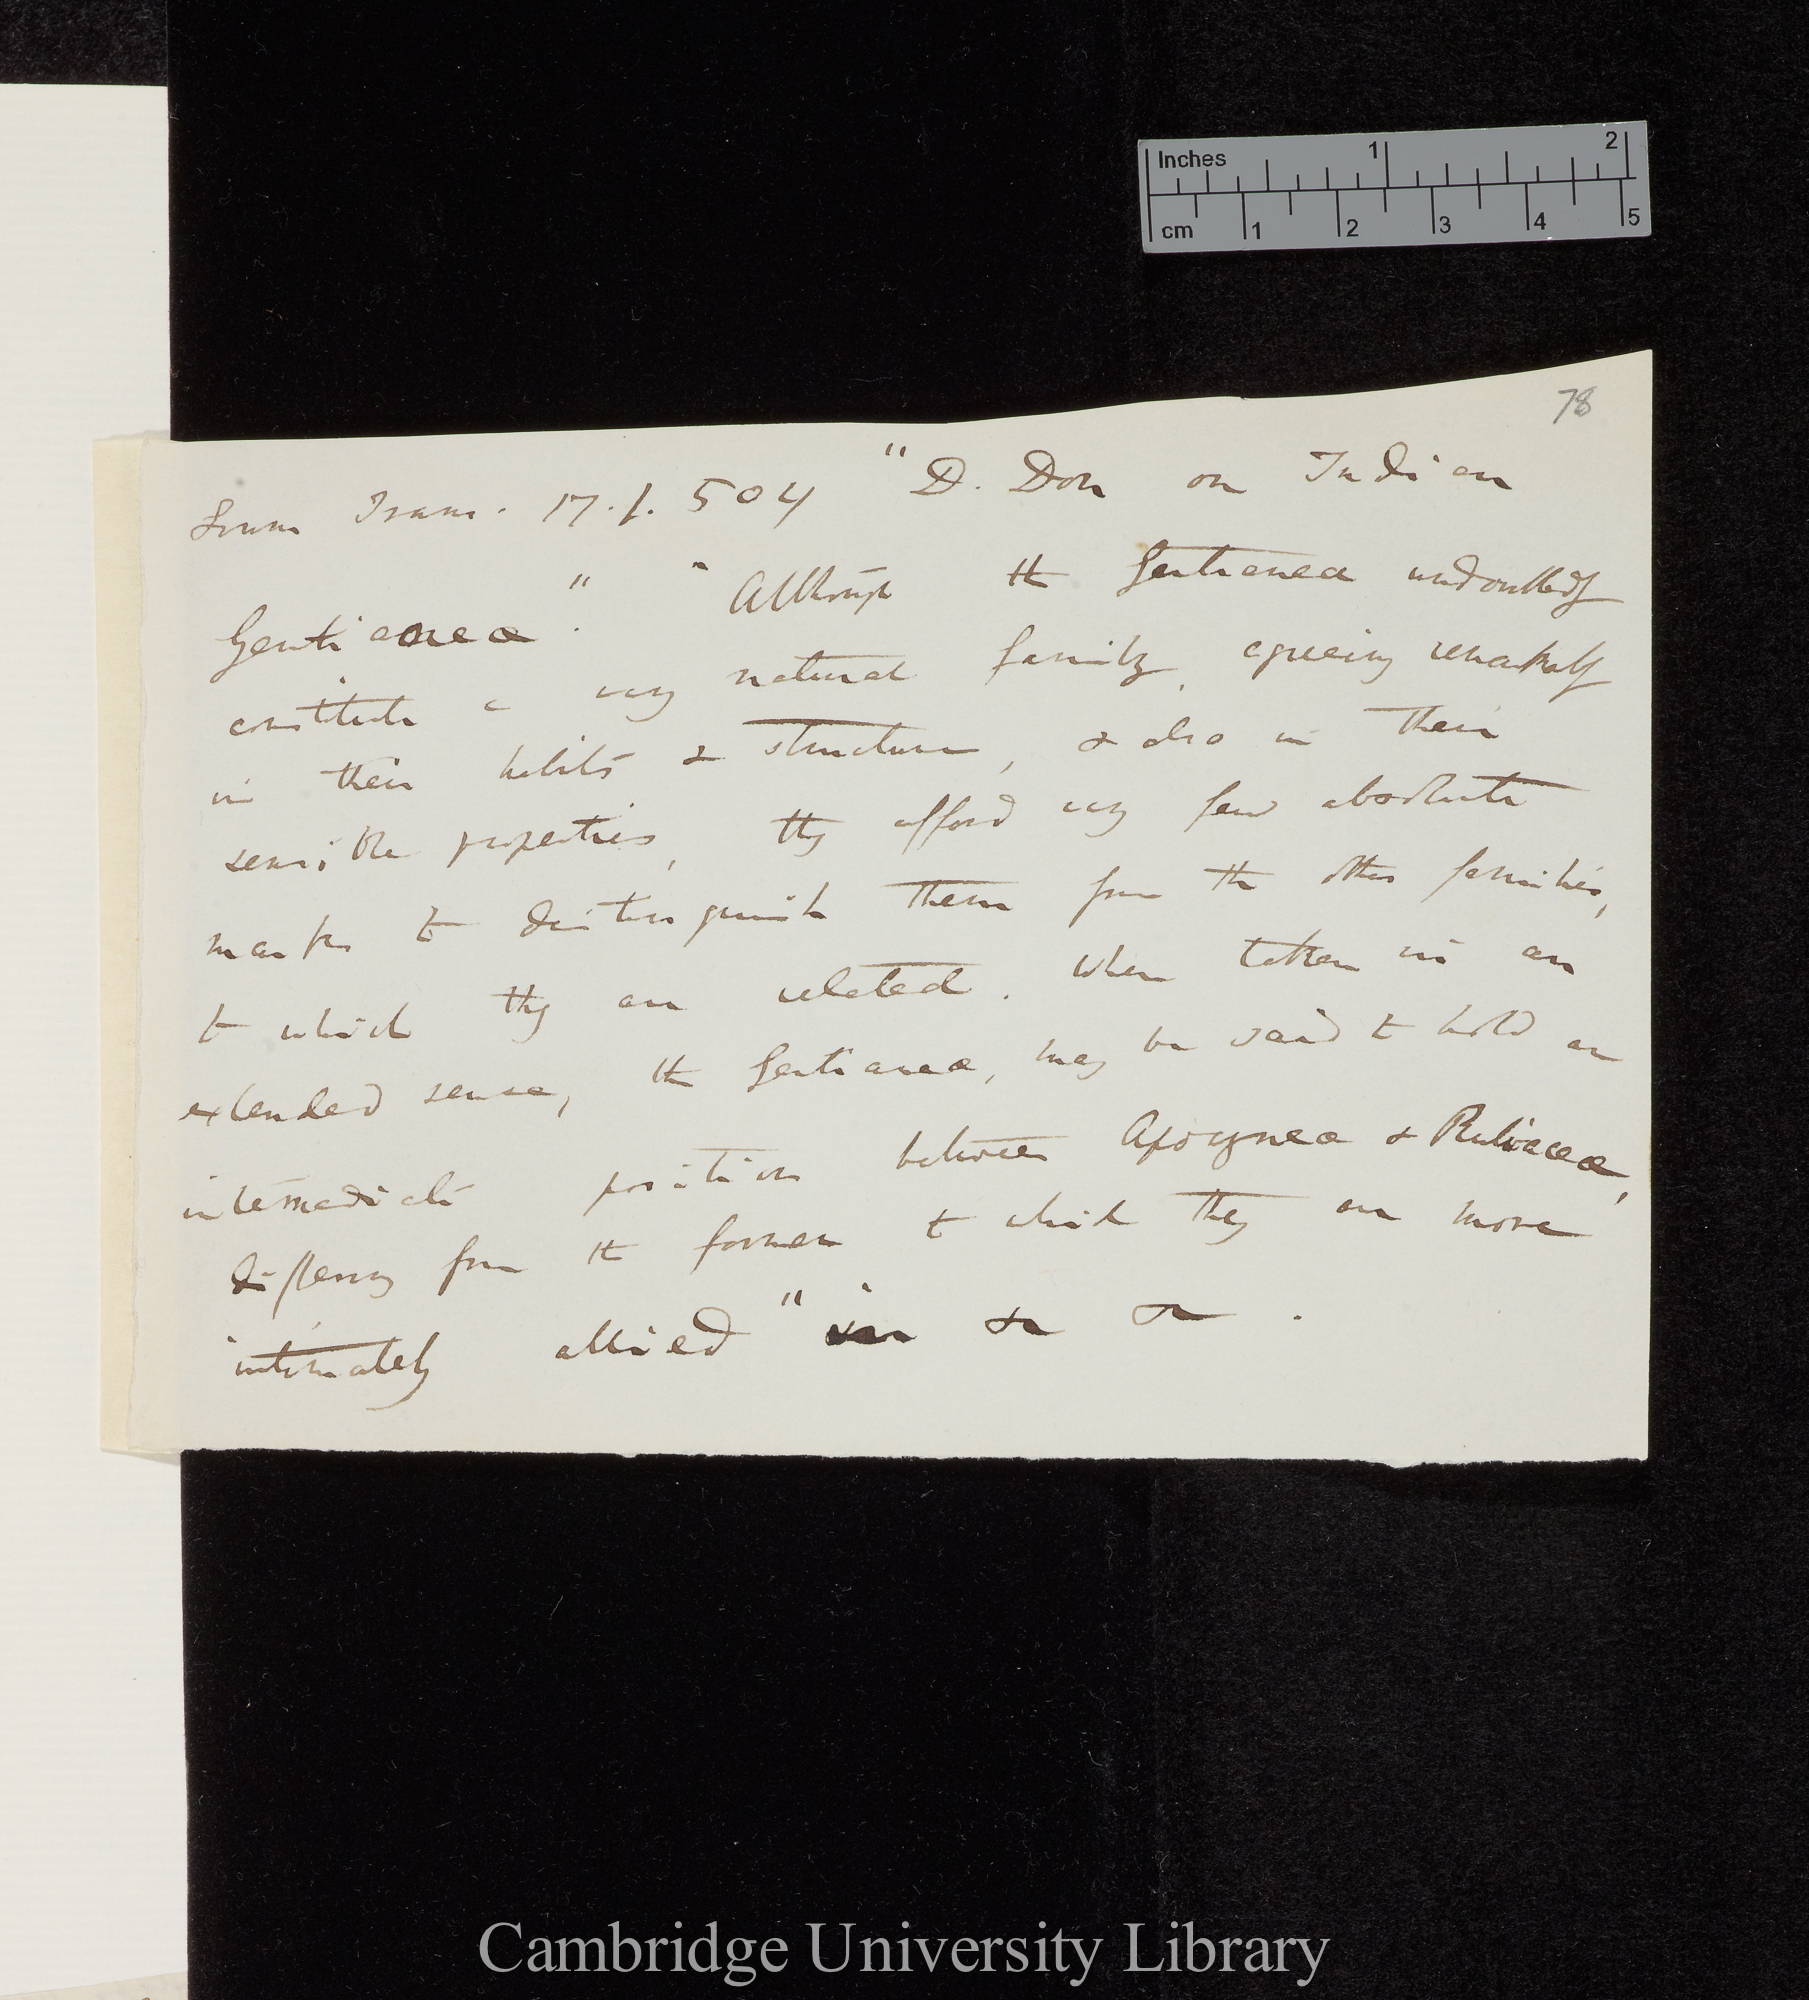 Inches 1 2
cm 1 2 3 4 5
78
Linn Trans. 17. p. 504 "D. Don on Indian
Gentianeæ". "Although the Gentianeæ undoubtedly
constitute a very natural family, agreeing remarkably
in their habits & structure, & also in their
sensible properties, they afford very few absolute
marks to distinguish them from the other families,
to which they are related. When taken in an
extended sense, the Gentianeæ, may be said to hold an
intermediate position between Apocyneæ & Rubiaceæ,
differing from the former to which they are more
intimately allied" in &c &c.
Cambridge University Library